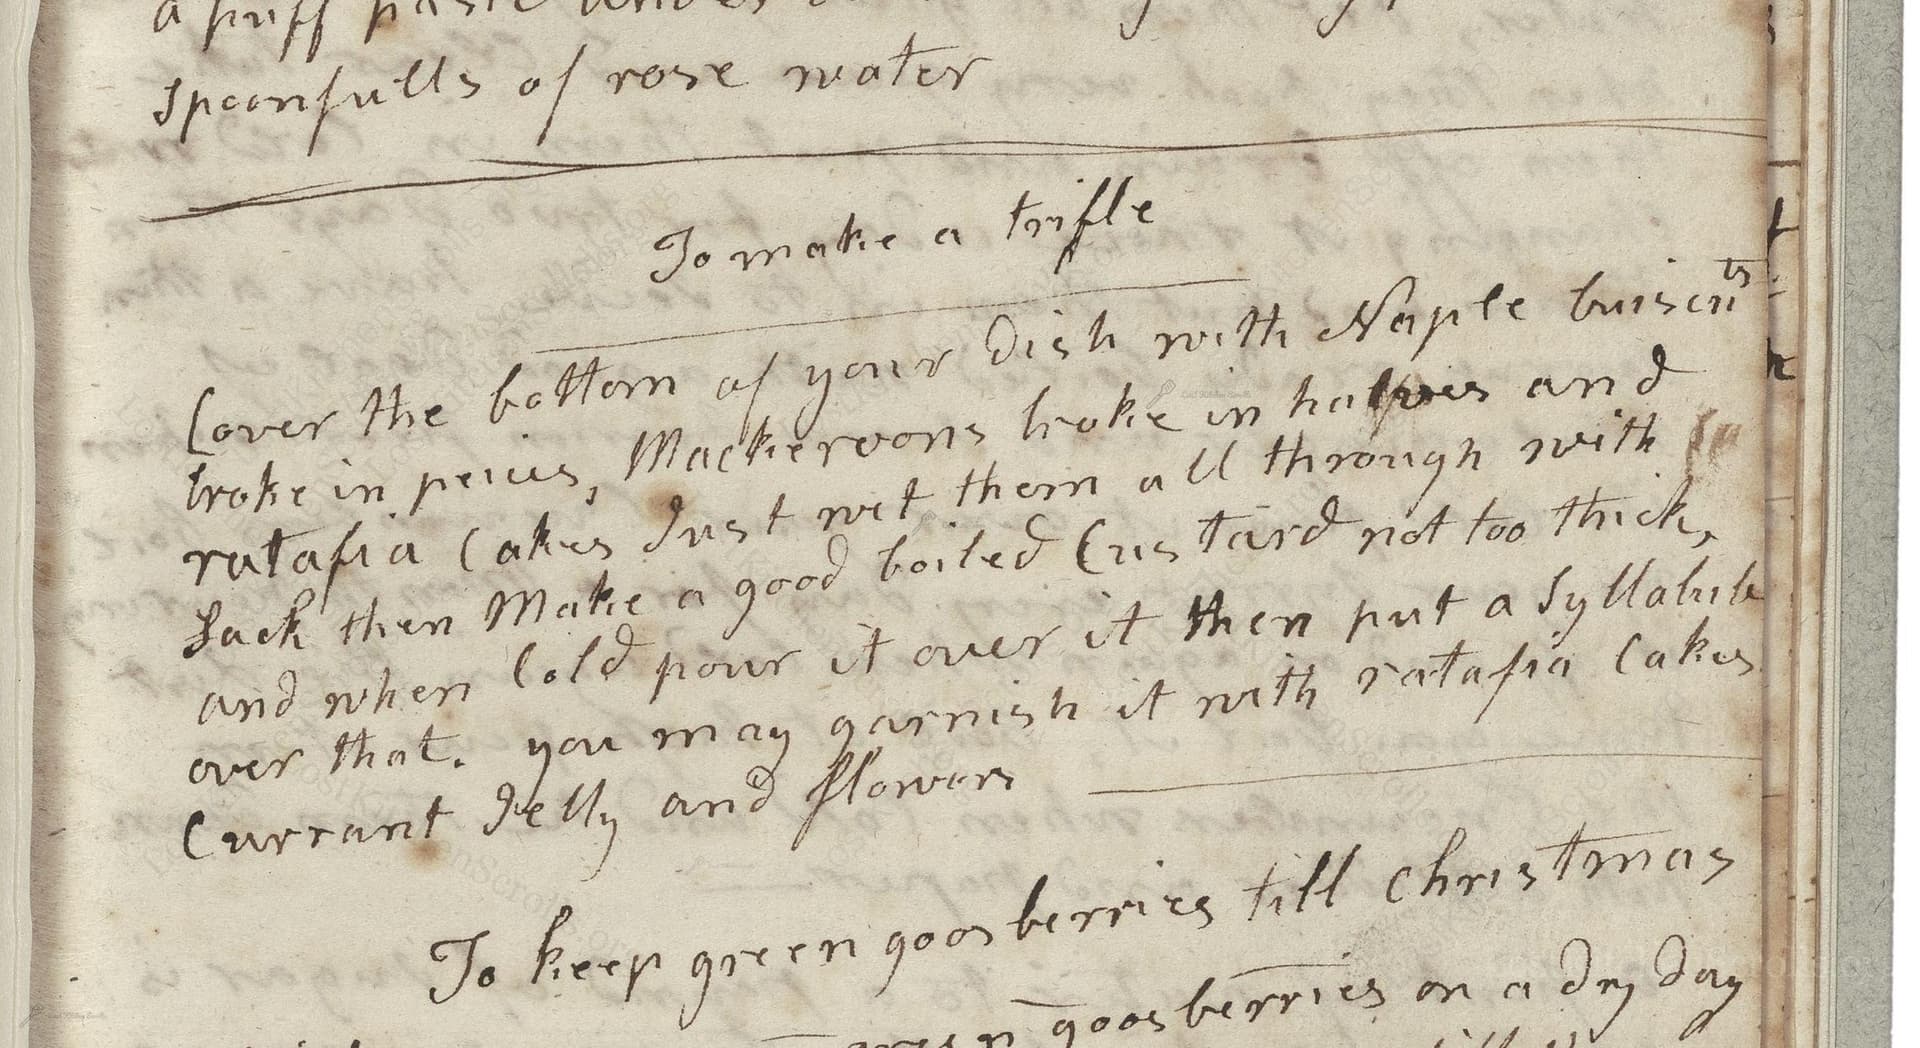 a puff paste
spoonfulls of rose water
To make a trifle
Cover the bottom of your Dish with Naple buiscuits
broke in peices, Mackeroons broke in halves and
ratafia Cakes Just wet them all through with
Sack then Make a good boiled Custard not too thick,
and when Cold pour it over it then put a Syllabub
over that. you may garnish it with ratafia Cakes
Currant Jelly and flowers
To keep green goosberries till christmas
green goosberries on a dry day